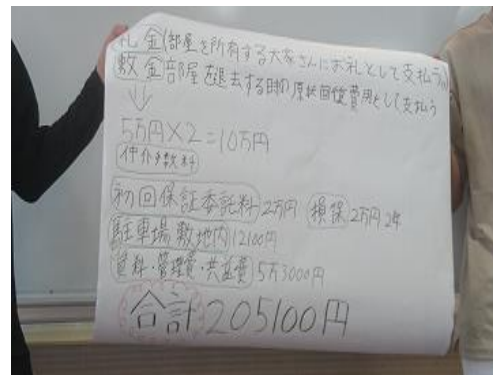 礼金(部屋を所有する大家さんにお礼として支払う)
敷金 部屋を退去する時の原状回復費用として支払う
↓
5万円×2=10万円
仲介手数料
初回保証委託料 2万円 損保 2万円 2年
駐車場敷地内 12100円
賃料・管理費・共益費 5万3000円
合計 205100円